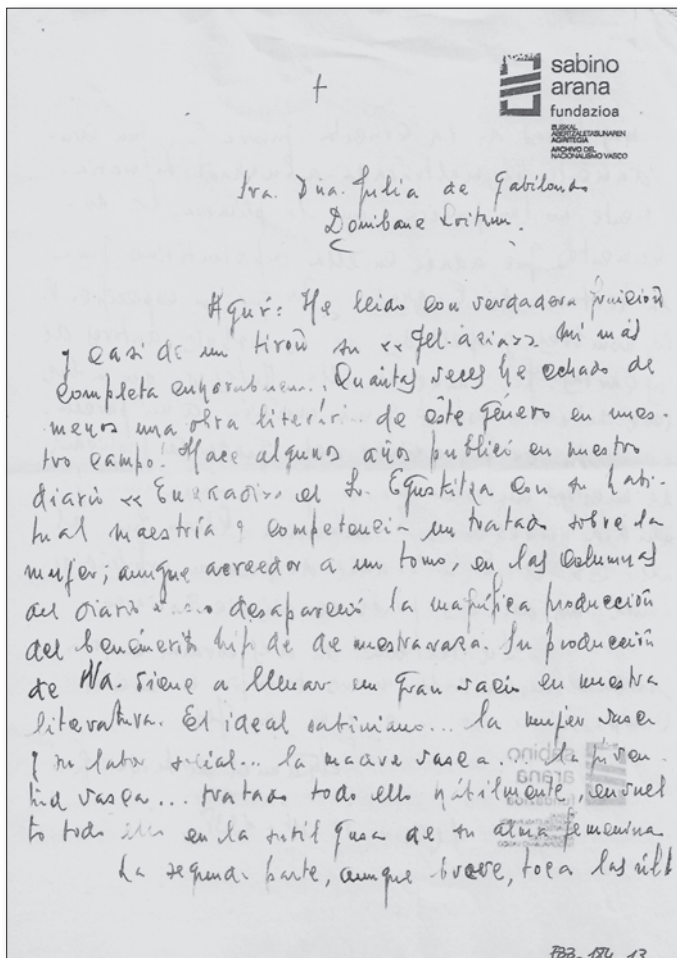 †
sabino
arana
fundazioa
EUSKAL
ABERTZALETASUNAREN
AGIRITEGIA
ARCHIVO DEL
NACIONALISMO VASCO
Sra. Dña. Julia de Gabilondo
Donibane Loitzun.
Agur: He leido con verdadera fruición
y casi de un tirón su << Gel-azia>> Mi más
completa enhorabuena. Quántas veces he echado de
menos una obra literária de este género en nues-
tro campo! Hace algunos años publicó en nuestro
diario << Euzkadi>> el Sr. Egustitza con su habi-
tual maestría y competencia un tratado sobre la
mujer; aunque acreedor a un tomo, en las columnas
del diario desapareció la magnífica producción
del benémerito hijo de de nuestra raza. Su producción
de Vd. viene a llenar un gran vacío en nuestra
literatura. El ideal sabiniano... la mujer vasca
y su labor social... la madre vasca... la juven-
tud vasca... tratado todo ello hábilmente, envuel
to todo ello en la sutil gasa de su alma femenina
La segunda parte, aunque breve, toca las últ